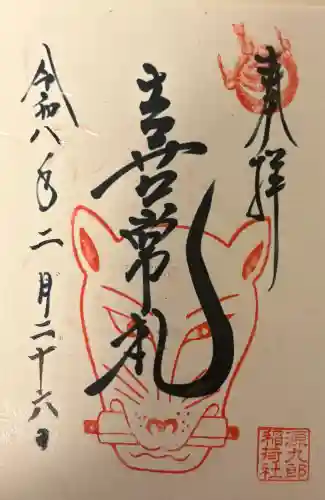 奉拝
喜常札
令和八年二月二十六日
源九郎
稲荷社